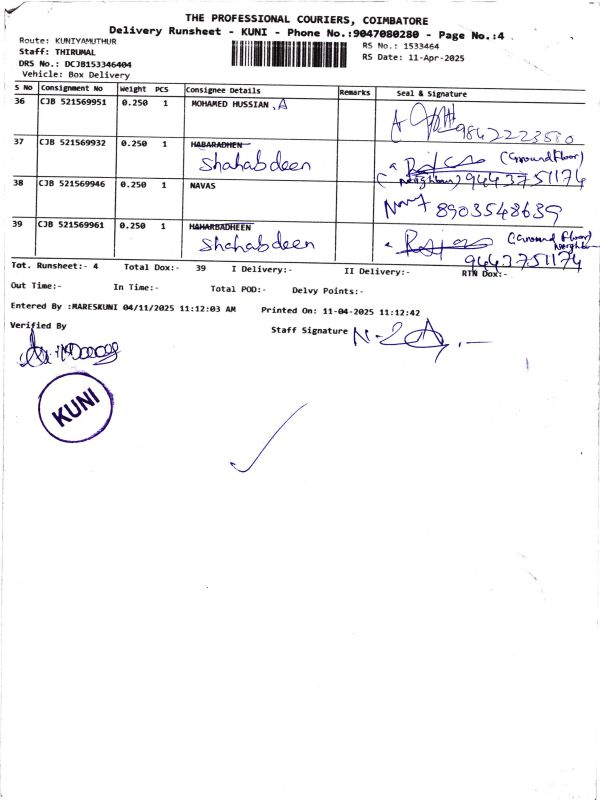 THE PROFESSIONAL COURIERS, COIMBATORE
Delivery Runsheet - KUNI - Phone No.:9047080280 - Page No.:4
Route: KUNIYAMUTHUR
RS No.: 1533464
Staff: THIRUMAL
RS Date: 11-Apr-2025
DRS No.: DCJB153346404
Vehicle: Box Delivery
S No Consignment No Weight PCS Consignee Details Remarks Seal & Signature
36 CJB 521569951 0.250 1 MOHAMED HUSSIAN , A
9842223580
37 CJB 521569932 0.250 1 HABARADHEN
Shahabdeen
(Ground Floor)
(Neighbour) 9443751174
38 CJB 521569946 0.250 1 NAVAS
8903548639
39 CJB 521569961 0.250 1 HAHARBADHEEN
Shahabdeen
(Ground Floor)
9443751174
Tot. Runsheet:- 4 Total Dox:- 39 I Delivery:- II Delivery:- RTN Dox:-
Out Time:- In Time:- Total POD:- Delvy Points:-
Entered By :MARESKUNI 04/11/2025 11:12:03 AM Printed On: 11-04-2025 11:12:42
Verified By
Staff Signature
KUNI